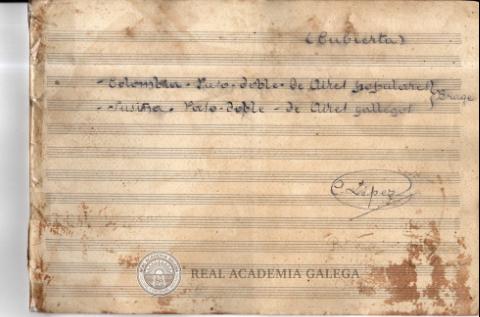 (Cubierta)
- Colombia - Paso-doble - de Aires populares } Brage
- Susiña - Paso-doble - de Aires gallegos
C. López
REAL ACADEMIA GALEGA